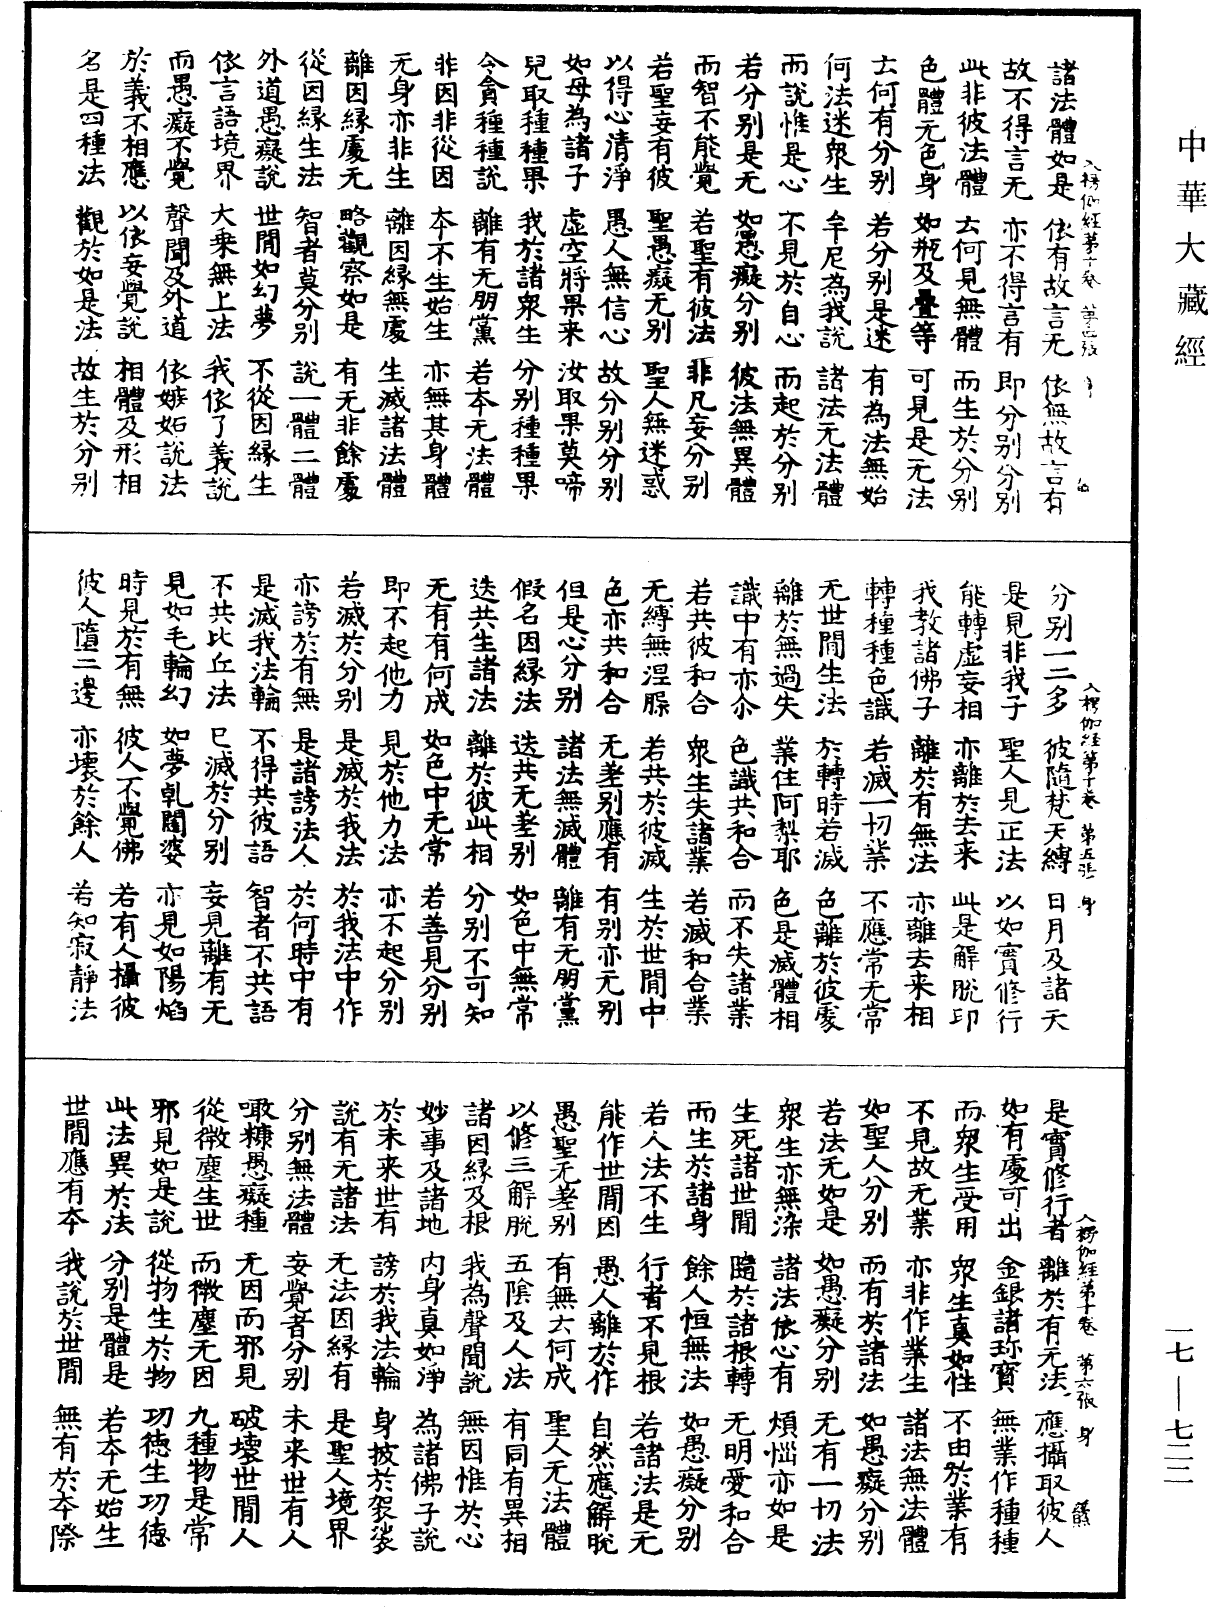 中華大藏經
諸法體如是 依有故言无 依無故言有
故不得言无 亦不得言有 即分别分别
此非彼法體 云何見無體 而生於分别
色體无色身 如瓶及疊等 可見是无法
云何有分别 若分别是迷 有為法無始
何法迷衆生 牟尼為我說 諸法无法體
而說惟是心 不見於自心 而起於分别
若分别是无 如愚癡分别 彼法無異體
而智不能覺 若聖有彼法 非凡妄分别
若聖妄有彼 聖愚癡无别 聖人無迷惑
以得心清淨 愚人無信心 故分别分别
如母為諸子 虛空將果来 汝取果莫啼
兒取種種果 我於諸衆生 分别種種果
令貪種種說 離有无朋黨 若夲无法體
非因非從因 夲不生始生 亦無其身體
无身亦非生 離因緣無處 生滅諸法體
離因緣處无 略觀察如是 有无非餘處
從因緣生法 智者莫分别 說一體二體
外道愚癡說 世間如幻夢 不從因緣生
依言語境界 大乘無上法 我依了義說
而愚癡不覺 聲聞及外道 依嫉妬說法
於義不相應 以依妄覺說 相體及形相
名是四種法 觀於如是法 故生於分别
入楞伽經第十卷
分别一二多 彼隨梵天縛 日月及諸天
是見非我子 聖人見正法 以如實修行
能轉虛妄相 亦離於去来 此是解脫印
我教諸佛子 離於有無法 亦離去来相
轉種種色識 若滅一切業 不應常无常
无世間生法 於轉時若滅 色離於彼處
離於無過失 業住阿梨耶 色是滅體相
識中有亦尒 色識共和合 而不失諸業
若共彼和合 衆生失諸業 若滅和合業
无縛無涅縣 若共於彼滅 生於世間中
色亦共和合 无差别應有 有别亦无别
但是心分别 諸法無滅體 離有无朋黨
假名因緣法 迭共无差别 如色中無常
迭共生諸法 離於彼此相 分别不可知
无有有何成 如色中无常 若善見分别
即不起他力 見於他力法 亦不起分别
若滅於分别 是滅於我法 於我法中作
亦謗於有無 是諸謗法人 於何時中有
是滅我法輪 不得共彼語 智者不共語
不共比丘法 已滅於分别 妄見離有无
見如毛輪幻 如夢乹闥婆 亦見如陽焰
時見於有無 彼人不覺佛 若有人攝彼
彼人墮二邊 亦壞於餘人 若知寂靜法
入楞伽經第十卷 第五張 身
是實修行者 離於有无法 應攝取彼人
如有處可出 金銀諸珎寶 無業作種種
而衆生受用 衆生真如性 不由於業有
不見故无業 亦非作業生 諸法無法體
如聖人分别 而有於諸法 如愚癡分别
若法无如是 如愚癡分别 无有一切法
衆生亦無染 諸法依心有 煩惱亦如是
生死諸世間 隨於諸根轉 无明愛和合
而生於諸身 餘人恒無法 如愚癡分别
若人法不生 行者不見根 若諸法是无
能作世間因 愚人離於作 自然應解脫
愚聖无差别 有無云何成 聖人无法體
以修三解脫 五陰及人法 有同有異相
諸因緣及根 我為聲聞說 無因惟於心
妙事及諸地 内身真如淨 為諸佛子說
於未来世有 謗於我法輪 身披於袈裟
說有无諸法 无法因緣有 是聖人境界
分别無法體 妄覺者分别 未来世有人
噉糠愚癡種 无因而邪見 破壞世間人
從微塵生世 而微塵无因 九種物是常
邪見如是說 從物生於物 功德生功德
此法異於法 分别是體是 若夲无始生
世間應有夲 我說於世間 無有於夲際
入楞伽經第十卷 第六張 身
一七—七二二